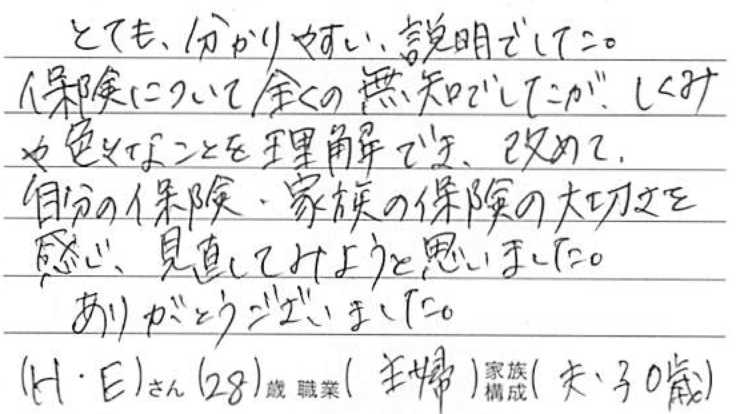 とても、分かりやすい、説明でした。
保険について全くの無知でしたが、しくみ
や色々なことを理解でき、改めて、
自分の保険・家族の保険の大切さを
感じ、見直してみようと思いました。
ありがとうございました。
(H・E)さん(28)歳 職業(主婦)家族構成(夫・子0歳)